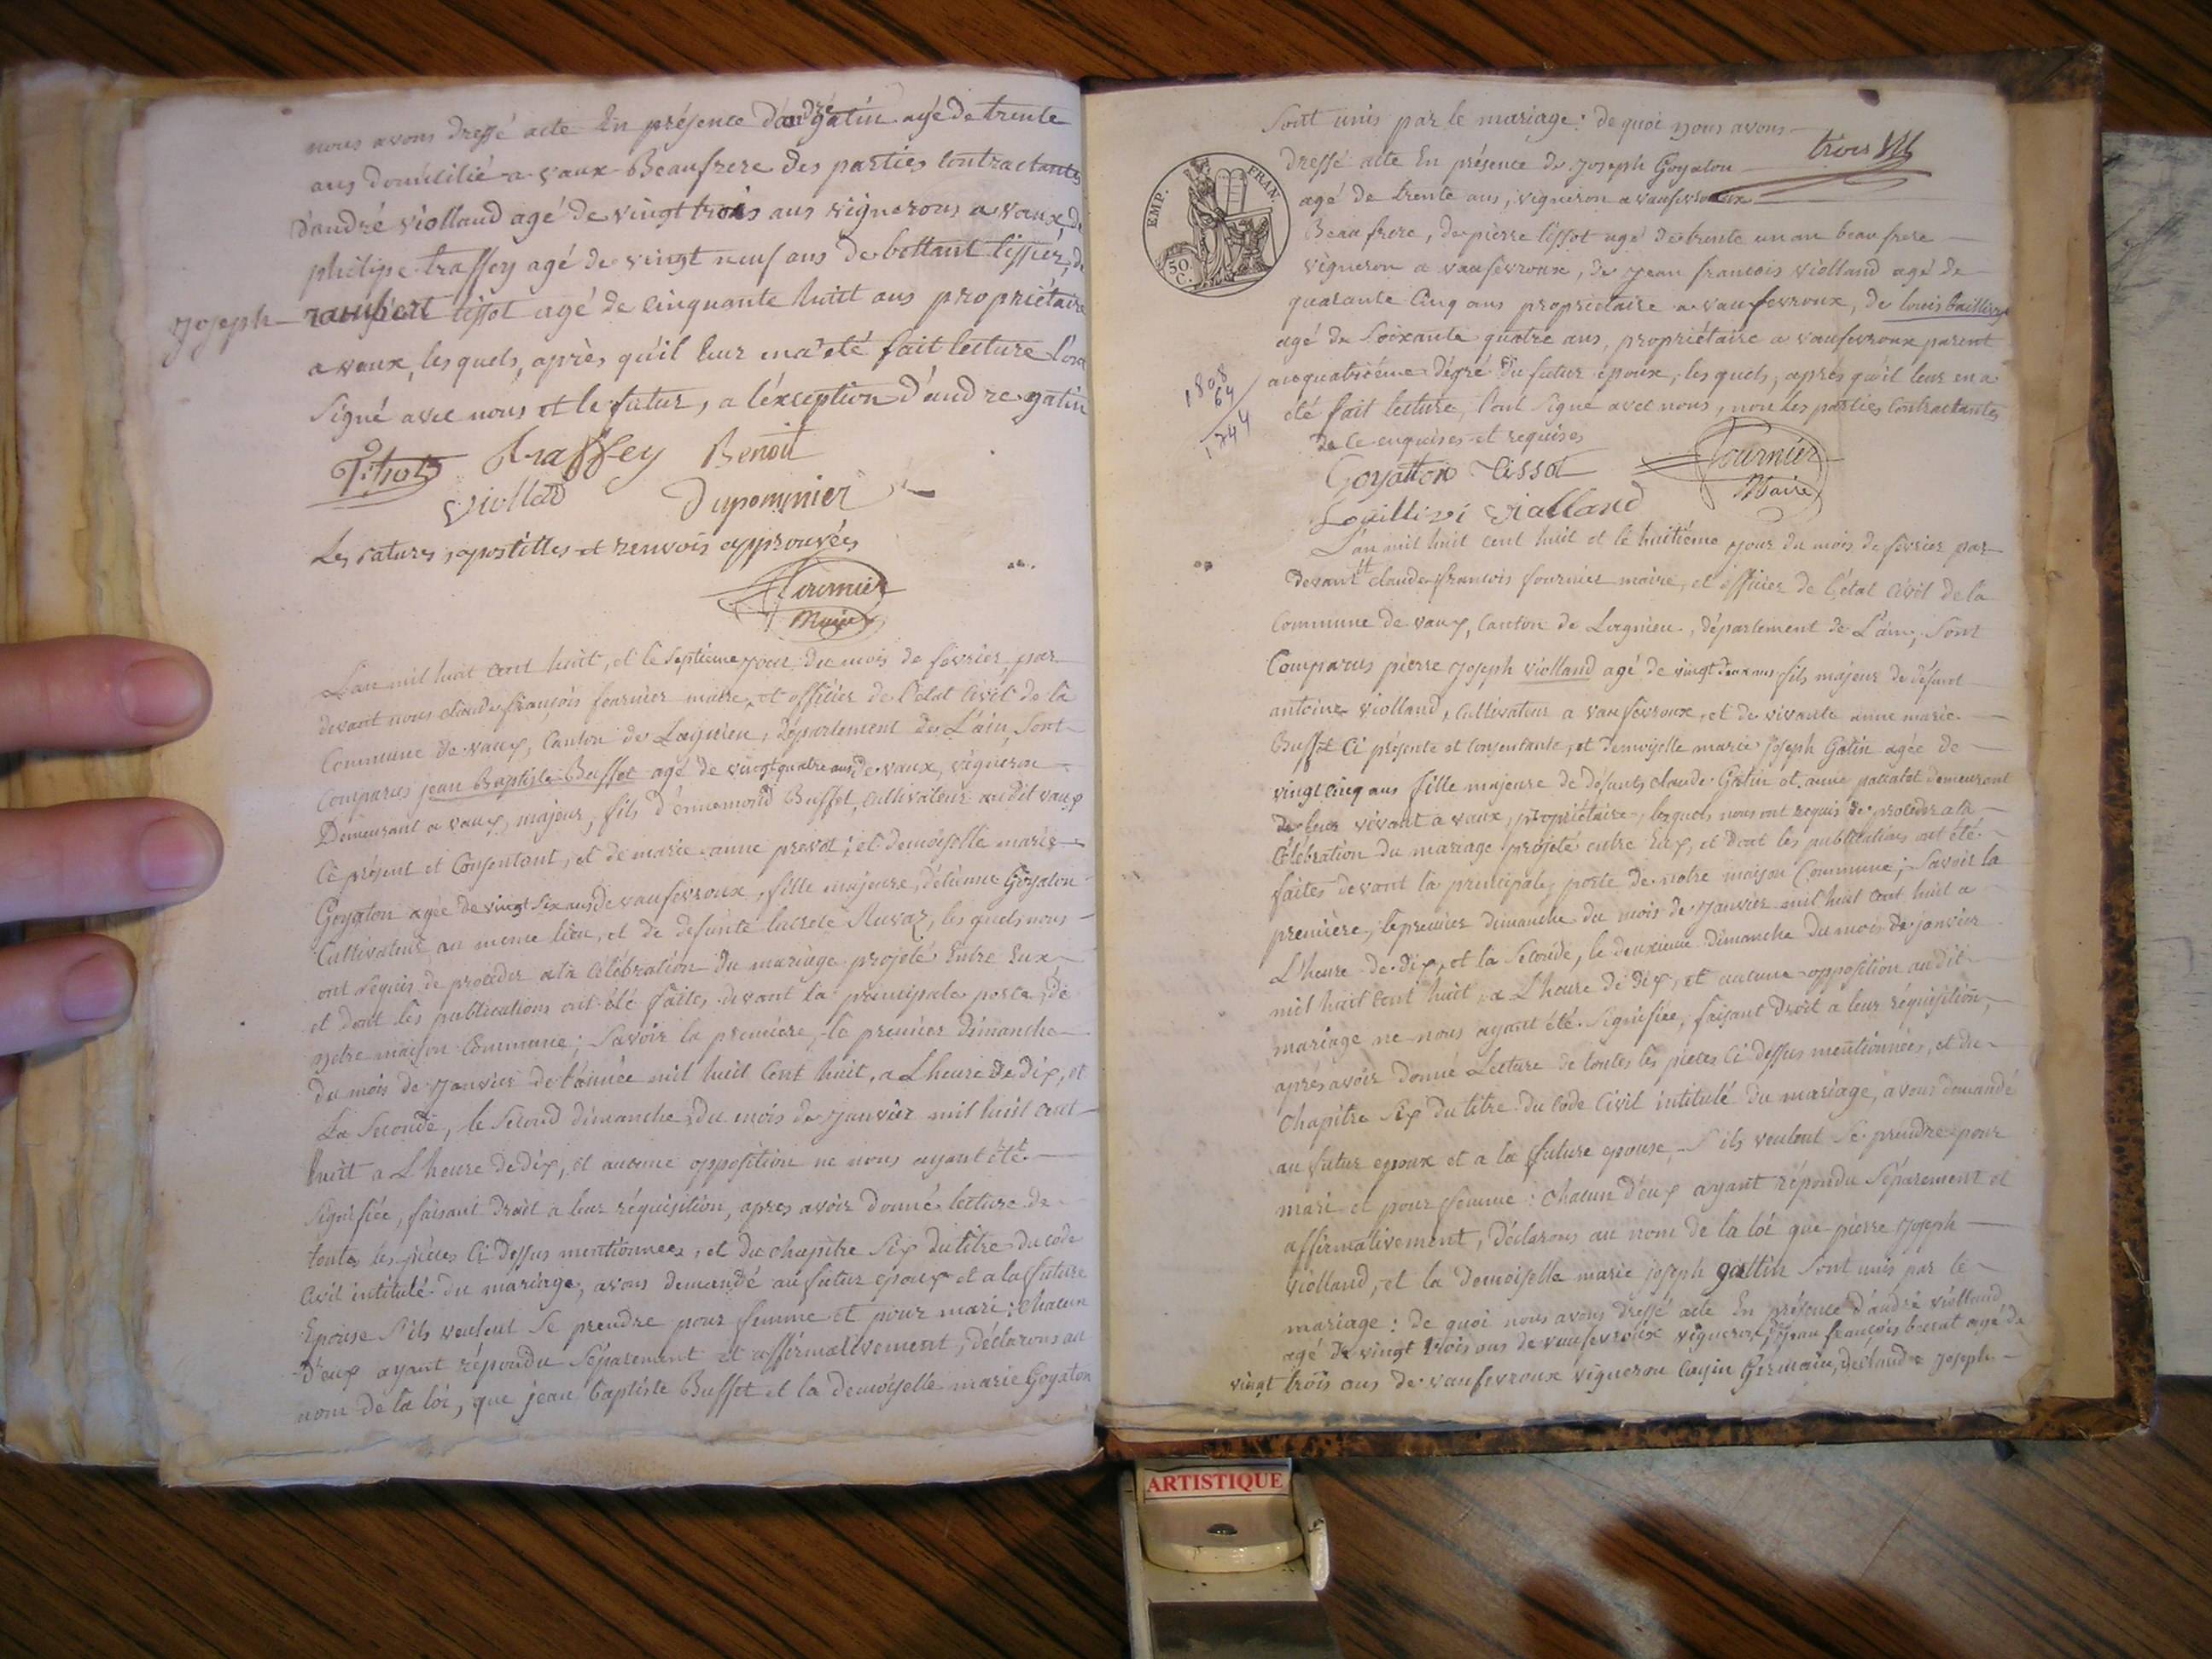 nous avons dressé acte En présence d'andré gatin agé de trente
ans domicilié a vaux Beaufrere des parties contractantes
d'andré violland agé de vingt trois ans vignerons a vaux, de
philipe traffey agé de vingt neuf ans de bettant tissier, de
joseph rambert tissot agé de cinquante huit ans propriétaire
a vaux, lesquels, après qu'il leur en a été fait lecture l'ont
signé avec nous et le futur, a l'éxception d'andre gatin
Traffey Benoit
Viollad Dupommier
Les ratures, apostilles et renvois approuvées
fournier
Maire
L'an mil huit cent huit, et le septieme jour du mois de février par
devant nous claude françois fournier maire, et officier de l'état civil de la
Commune de vaux, canton de Lagnieu, département de L'ain, sont
Comparus jean Baptiste Buffet agé de vingt quatre ans de vaux, vigneron
Demeurant a vaux, majeur, fils d'ennemond Buffet, cultivateur audit vaux
Ci présent et Consentant, et de marie anne prevot; et demoiselle marie
Goyaton agée de vingt six ans de vaufevroux, fille majeure, d'etienne Goyaton
Cultivateur au meme lieu, et de defunte lucrece Ruvaz, les quels nous
ont requis de proceder a la célébration du mariage projeté Entre Eux
et dont les publications ont été faites devant la principale porte de
notre maison commune; savoir la premiere, le premier dimanche
du mois de janvier de l'année mil huit cent huit, a L'heure de dix, et
La seconde, le second dimanche du mois de janvier mil huit cent
huit a L'heure de dix, et aucune opposition ne nous ayant été
signifiée, faisant droit a leur réquisition, apres avoir donné lecture de
toutes les pieces ci dessus mentionnees, et du chapitre six du titre du code
civil intitulé du mariage, avons demandé au futur epoux et a la future
Epouse s'ils veulent se prendre pour femme et pour mari; chacun
d'eux ayant répondu séparement et affirmativement, déclarons au
nom de la loi, que jean baptiste Buffet et la demoiselle marie Goyaton
sont unis par le mariage: de quoi nous avons
trois
dressé acte En présence de joseph Goyaton
agé de trente ans, vigneron a vaufevroux
Beaufrere, de pierre tissot agé de trente un an beau frere
vigneron a vaufevroux, de jean francois violland agé de
EMP. FRAN.
50 C.
quarante cinq ans proprietaire a vaufevroux, de louis
agé de soixante quatre ans, propriétaire a vaufevroux parent
au quatriéme dégré du futur époux, les quels, après qu'il leur en a
1808
64
1744
été fait lecture, l'ont signé avec nous, non les parties contractantes
de ce enquises et requises
Goyatton Tissot fournier
Maire
Violland
L'an mil huit cent huit et le huitième jour du mois de février par
devant claude francois fournier maire, et officier de l'état civil de la
Commune de vaux, canton de Lagnieu, département de L'ain, sont
Comparus pierre joseph violland agé de vingt deux ans fils majeur de défunt
antoine violland, cultivateur a vaufevroux, et de vivante anne marie
Buffet ci présente et consentante, et demoiselle marie joseph Gatin agée de
vingt cinq ans fille majeure de defunts claude Gatin et anne demeurant
de leur vivant a vaux, propriétaire, lesquels nous ont requis de proceder a la
Célébration du mariage projeté entre Eux, et dont les publications ont été
faites devant la principale porte de notre maison Commune; savoir la
première, le premier dimanche du mois de janvier mil huit cent huit a
L'heure de dix, et la seconde, le deuxieme dimanche du mois de janvier
mil huit cent huit, a L'heure de dix, et aucune opposition audit
mariage ne nous ayant été signifiée, faisant droit a leur réquisition,
après avoir donné Lecture de toutes les pieces ci dessus mentionnées, et du
chapitre six du titre du code civil intitulé du mariage, avons demandé
au futur epoux et a la future epouse, s'ils veulent se prendre pour
mari et pour femme: chacun d'eux ayant répondu séparement et
affirmativement, déclarons au nom de la loi que pierre joseph
violland, et la demoiselle marie joseph gattin sont unis par le
mariage: de quoi nous avons dressé acte En présence d'andré violland
agé de vingt trois ans de vaufevroux vigneron, de jean françois agé de
vingt trois ans de vaufevroux vigneron cousin Germain, de claude joseph
ARTISTIQUE